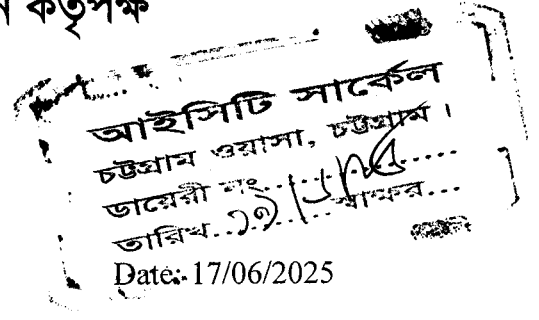 ন কর্তৃপক্ষ
আইসিটি সার্কেল
চট্টগ্রাম ওয়াসা, চট্টগ্রাম।
ডায়েরী নং..................
তারিখ..............স্বাক্ষর...
Date: 17/06/2025